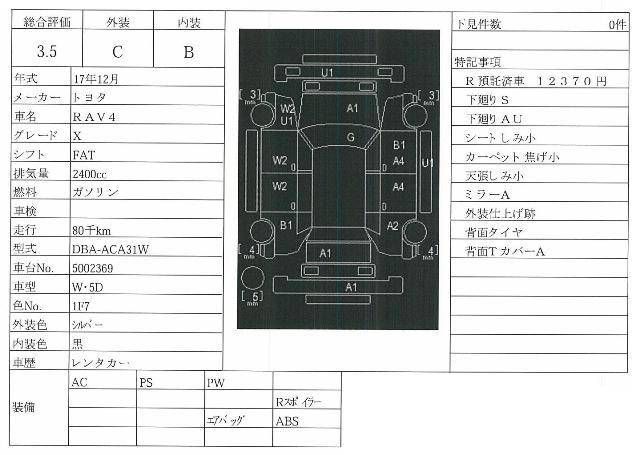 総合評価 外装 内装
3.5 C B
年式 17年12月
メーカー トヨタ
車名 RAV4
グレード X
シフト FAT
排気量 2400cc
燃料 ガソリン
車検
走行 80千km
型式 DBA-ACA31W
車台No. 5002369
車型 W・5D
色No. 1F7
外装色 シルバー
内装色 黒
車歴 レンタカー
装備
AC PS PW
Rスポイラー
エアバッグ ABS
U1
[3] mm A1 [3] mm
W2
U1
G
B1
W2 A4 U1
W2 A4
B1 A2
[4] mm A1 [4] mm
[5] mm A1
下見件数 0件
特記事項
R預託済車 12370円
下廻りS
下廻りAU
シートしみ小
カーペット焦げ小
天張しみ小
ミラーA
外装仕上げ跡
背面タイヤ
背面TカバーA